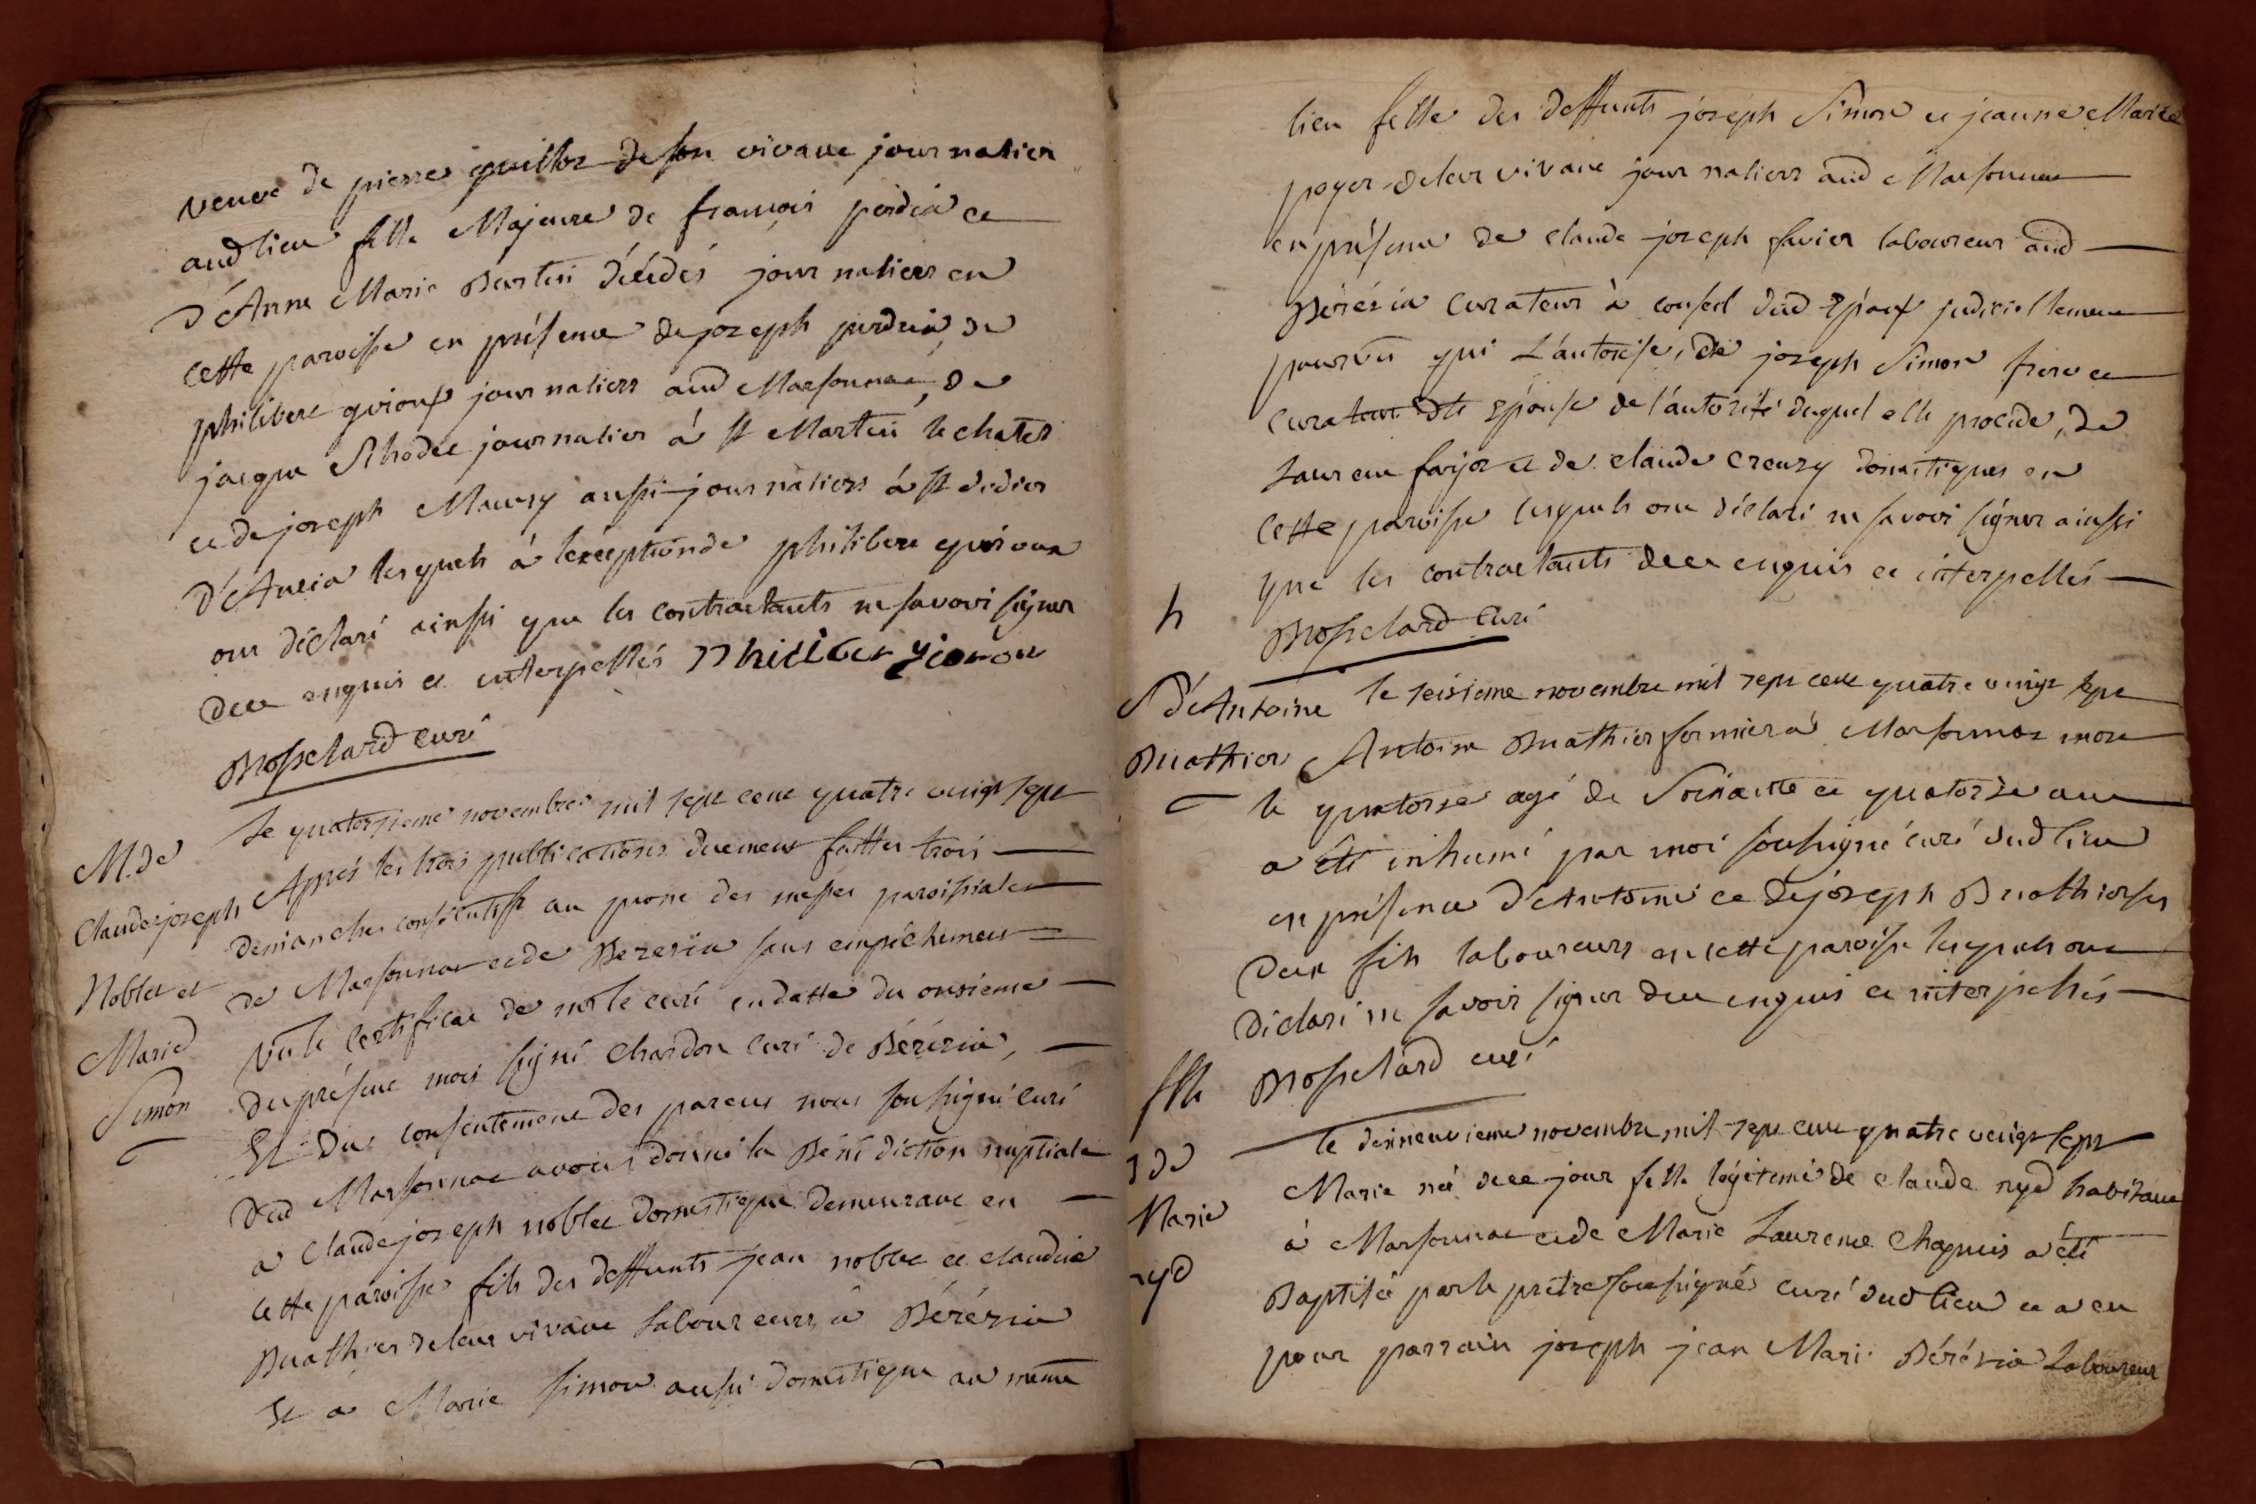 veuve de pierre guillot de son vivant journalier
aud lieu fille Majeure de francois perdrix et
d'Anne Marie Bertin décédés journaliers en
cette paroisse en présence de joseph perdrix, de
philibert guionx journaliers aud Marsonnac, de
jacque journalier à st Martin le chatel
et de joseph Maury aussi journaliers à st didier
d'Aucia lesquels à l'exception de philibert
ont déclaré ainsi que les contractants ne savoir signer
de ce enquis et interpellés
Mosselard curé
M. de
Claude joseph
Noblet et
Marie
Simon
Le quatorzieme novembre mil sept cent quatre vingt sept
Après les trois publications duement faittes trois
dimanches consécutifs au prone des messes paroissiales
de Marsonnac et de Bezezia sans empêchement
vu le certificat de mr le curé en datte du onzieme
du présent mois signé Chardon curé de Bérézia,
Et du consentement des parens nous soussigné curé
dud Marsonnac avons donné la Bénédiction nuptiale
a Claude joseph noblet domestique demeurant en
cette paroisse fils des deffunts jean noblet et claudine
Buathier de leur vivant laboureurs à Bérézia
Et a Marie Simon aussi domestique au même
lieu fille des deffunts joseph Simon et jeanne Marie
poyer de leur vivant journaliers aud Marsonnac
en présence de claude joseph favier laboureur aud
Bérézia curateur à conseil dud Epoux judiciellement
pourvu qui l'autorise, de joseph Simon frere et
curateur de lte Epouse de l'autorité duquel elle procede, de
Laurent farjot et de claude creuzy domestiques en
cette paroisse lesquels ont déclaré ne savoir signer ainssi
que les contractants de ce enquis et interpellés
h
Mosselard curé
S d'Antoine
Buathier
le seisieme novembre mil sept cent quatre vingt sept
Antoine Buathier fermier à Marsonnac mort
le quatorze agé de Soixante et quatorze ans
a été inhumé par moi soussigné curé dud lieu
en présence d'Antoine et de joseph Buathier ses
deux fils laboureurs en cette paroisse lesquels ont
déclaré ne savoir signer de ce enquis et interpellés
Mosselard curé
Marie
nyd
le dixneuvieme novembre mil sept cent quatre vingt sept
Marie né de ce jour fille légitime de claude nyd habitant
à Marsonnac et de Marie Laurence Chapuis a été
Baptisée par le prêtre soussigné curé dud lieu et a eu
pour parrain joseph jean Marie Bérézia Laboureur